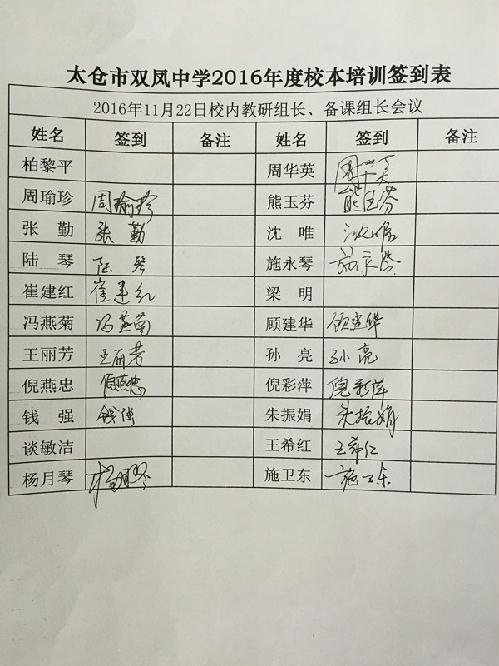 太仓市双凤中学2016年度校本培训签到表
2016年11月22日校内教研组长、备课组长会议
姓名 签到 备注 姓名 签到 备注
柏黎平 周华英 周华英
周瑜珍 周瑜珍 熊玉芬 熊玉芬
张勤 张勤 沈唯 沈唯
陆琴 陆琴 施永琴 施永琴
崔建红 崔建红 梁明
冯燕菊 冯燕菊 顾建华 顾建华
王丽芳 王丽芳 孙亮 孙亮
倪燕忠 倪燕忠 倪彩萍 倪彩萍
钱强 钱强 朱振娟 朱振娟
谈敏洁 王希红 王希红
杨月琴 杨月琴 施卫东 施卫东